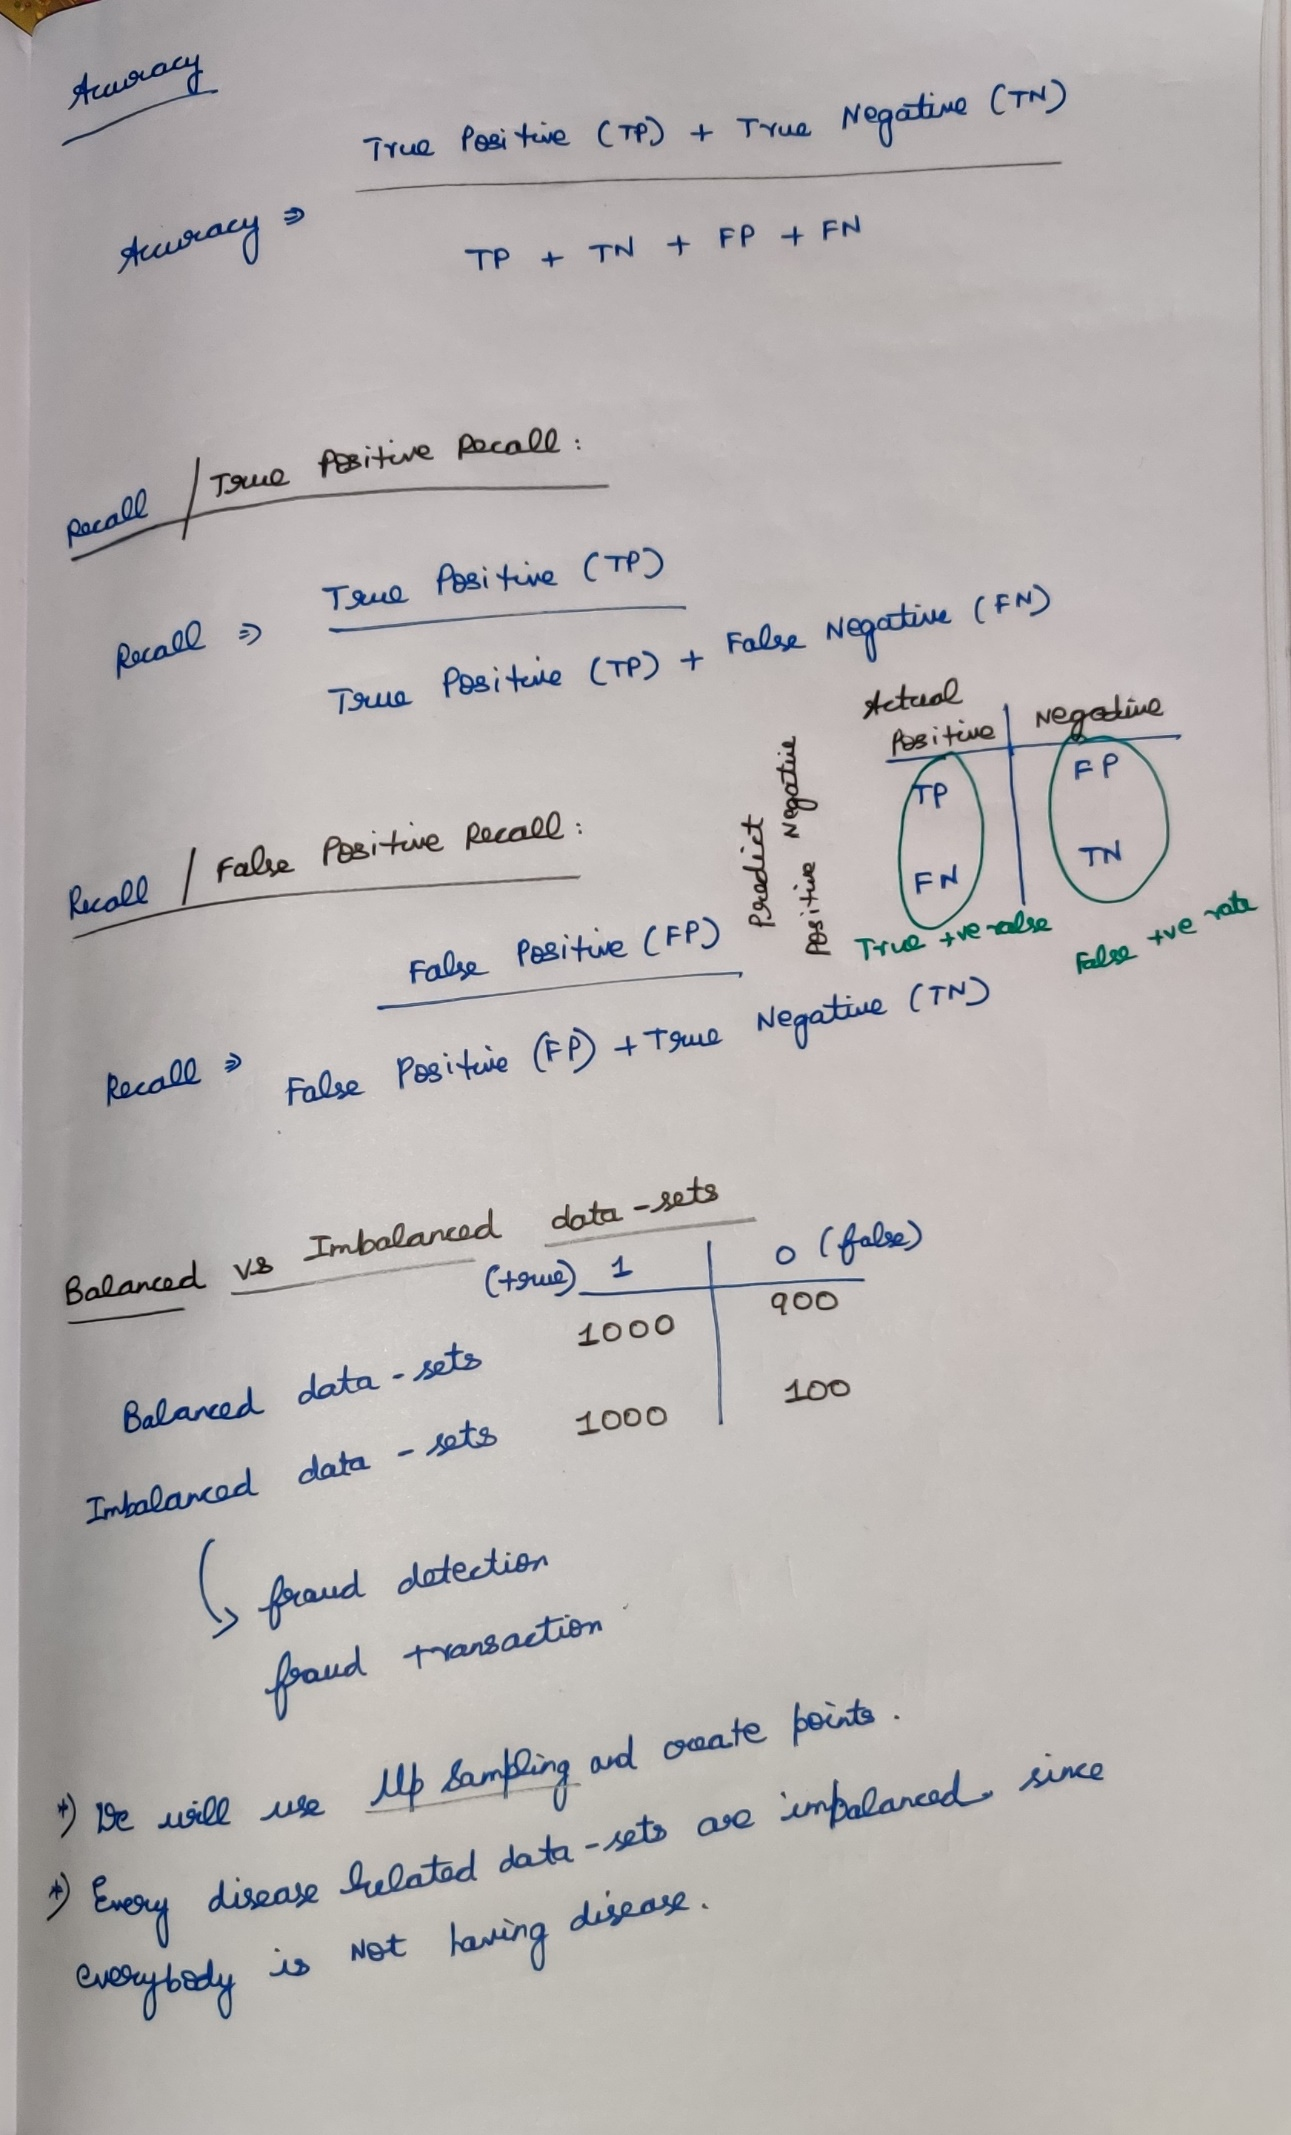 Accuracy
True Positive (TP) + True Negative (TN)
Accuracy ⇒
TP + TN + FP + FN
Recall / True Positive Recall :
True Positive (TP)
Recall ⇒
True Positive (TP) + False Negative (FN)
Actual
Positive | Negative
Predict
Positive Negative
TP FP
FN TN
True +ve ralse
False +ve rate
Recall / False Positive Recall :
False Positive (FP)
Recall ⇒
False Positive (FP) + True Negative (TN)
Balanced vs Imbalanced data-sets
(true) 1 | 0 (false)
Balanced data-sets 1000 900
Imbalanced data-sets 1000 100
fraud detection
fraud transaction
*) We will use Up Sampling and create points.
*) Every disease related data-sets are imbalanced, since
everybody is Not having disease.